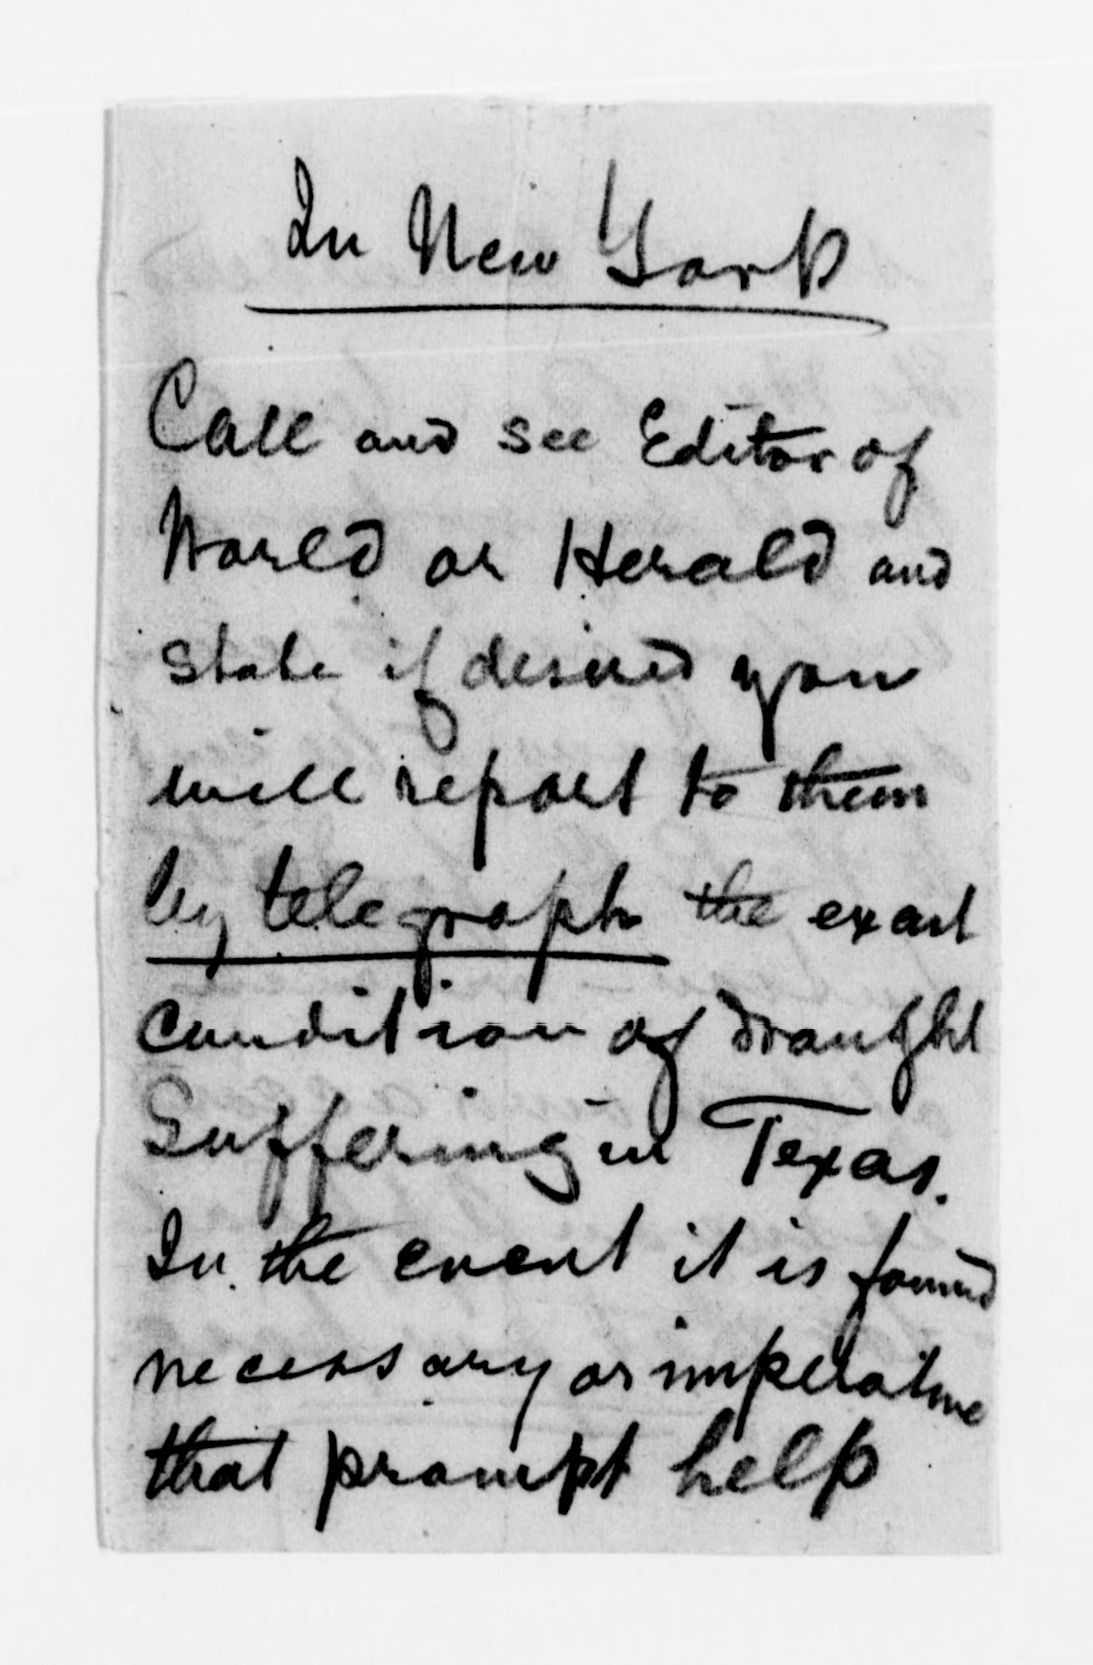 In New York
Call and see Editor of
World or Herald and
state if desired you
will report to them
by telegraph the exact
condition of draught
Suffering in Texas.
In the event it is found
necessary or imperative
that prompt help